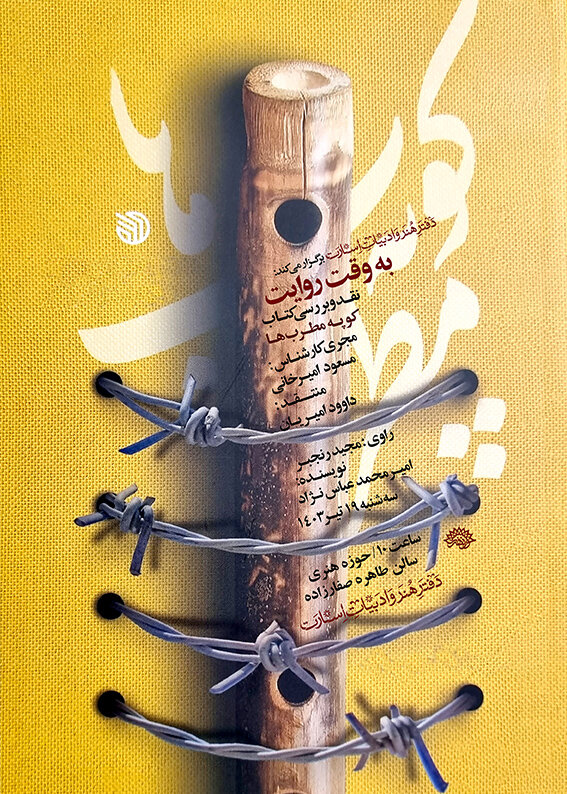 کوپه
مطرب
ها
دفتر هنر و ادبیات اسارت برگزار می‌کند:
به وقت روایت
نقد و بررسی کتاب
کوپه مطرب‌ها
مجری کارشناس:
مسعود امیرخانی
منتقد:
داوود امیریان
راوی: مجید رنجبر
نویسنده:
امیرمحمد عباس نژاد
سه‌شنبه ۱۹ تیر ۱۴۰۳
ساعت ۱۰/ حوزه هنری
سالن طاهره صفارزاده
دفتر هنر و ادبیات اسارت